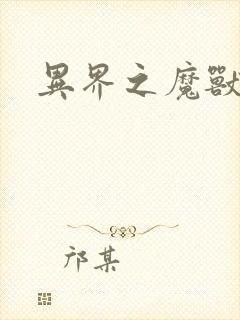 異界之魔獸
邝某